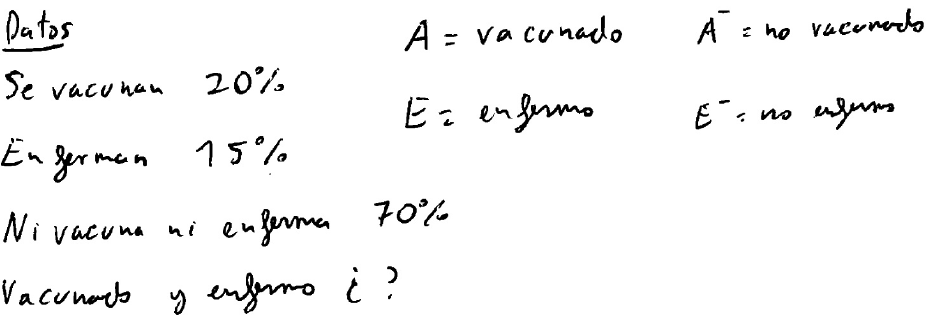 Datos
A = vacunado A⁻ = no vacunado
Se vacunan 20%
E = enfermo E⁻ = no enfermo
Enferman 15%
Ni vacuna ni enferma 70%
Vacunado y enfermo ¿?